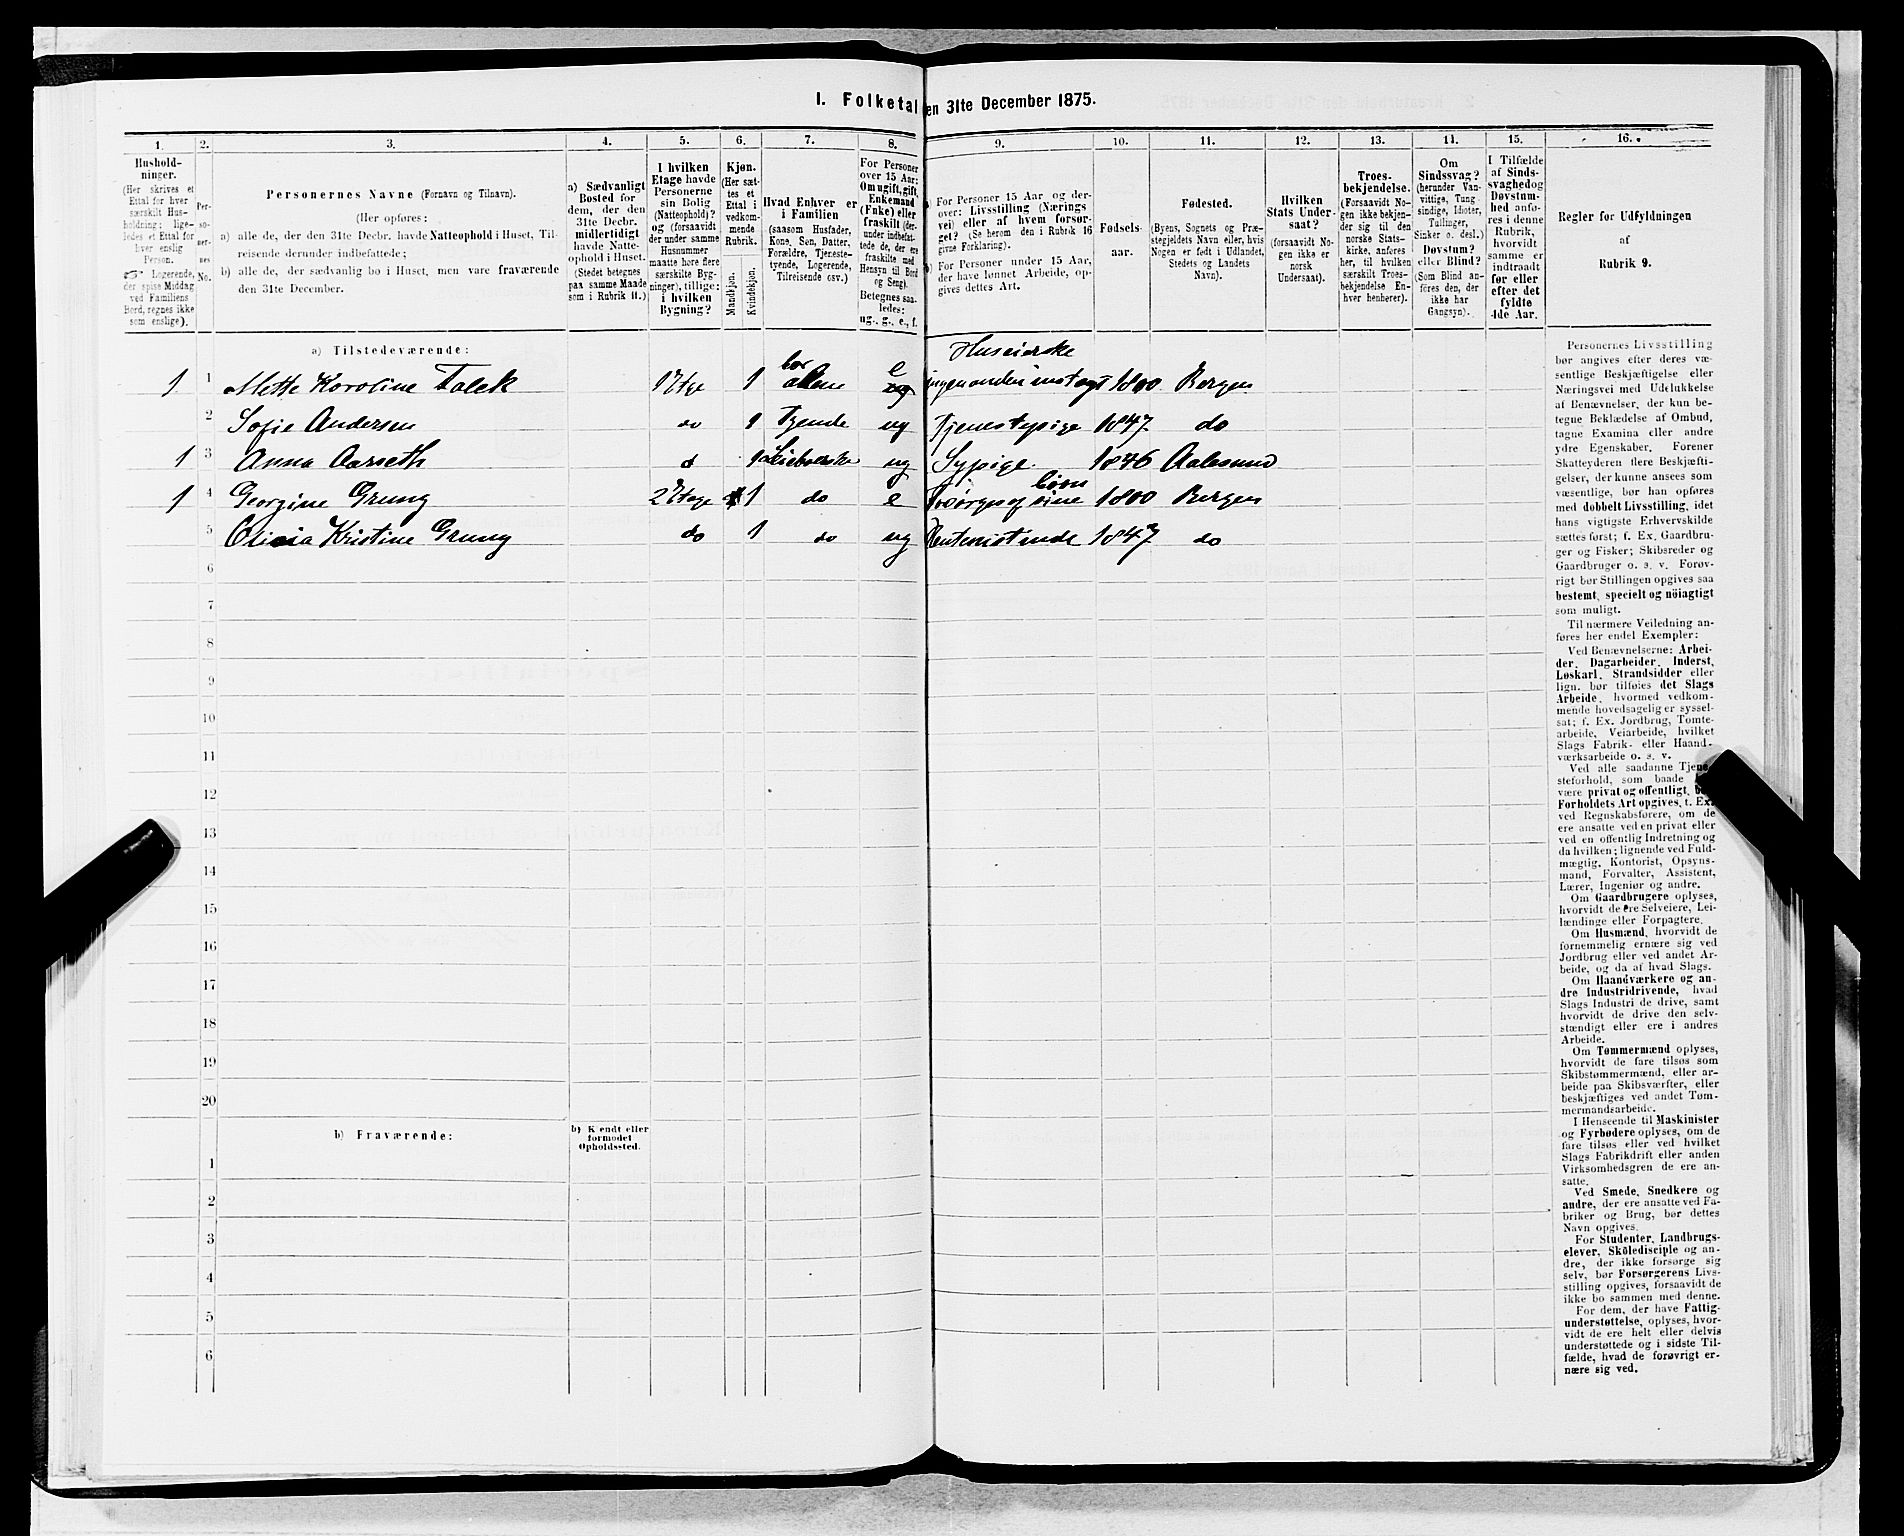 I. Folketal
en 31te December 1875.
1. 2. 3. 4. 5. 6. 7. 8. 9. 10. 11. 12. 13. 14. 15. 16.
Hushold-
ninger.
(Her skrives et
Ettal for hver
særskilt Hus-
holdning; lige-
ledes et Ettal for
hver enslig
Person.
☞ Logerende,
der spise Middag
ved Familiens
Bord, regnes ikke
som enslige).
Per-
so-
ner-
nes
No.
Personernes Navne (Fornavn og Tilnavn).
(Her opføres:
a) alle de, der den 31te Decbr. havde Natteophold i Huset, Til-
reisende derunder indbefattede;
b) alle de, der sædvanlig bo i Huset, men vare fraværende
den 31te December.
a) Sædvanligt
Bosted for
dem, der den
31te Decbr.
midlertidigt
havde Natte-
ophold i Huset.
(Stedet betegnes
paa samme Maade
som i Rubrik 11.)
I hvilken
Etage havde
Personerne
sin Bolig
(Natteophold)?
og (forsaavidt
der under samme
Husnummer
maatte høre flere
særskilte Byg-
ninger), tillige:
i hvilken
Bygning?
Kjøn.
(Her sæt-
tes et
Ettal i
vedkom-
mende
Rubrik.
Mandkjøn.
Kvindekjøn.
Hvad Enhver er
i Familien
(saasom Husfader,
Kone, Søn, Datter,
Forældre, Tjeneste-
tyende, Logerende,
Tilreisende osv.)
For Personer
over 15 Aar:
Om ugift, gift,
Enkemand
(Enke) eller
fraskilt (der-
under indbefat-
tede de, der ere
fraskilte med
Hensyn til Bord
og Seng).
Betegnes saa-
ledes:
ug., g., e., f.
For Personer 15 Aar og der-
over: Livsstilling (Nærings
vei) eller af hvem forsør-
get? (Se herom den i Rubrik 16
givne Forklaring).
For Personer under 15 Aar,
der have lønnet Arbeide, op-
gives dettes Art.
Fødsels-
aar.
Fødested.
(Byens, Sognets og Præ-
stegjeldets Navn eller, hvis
Nogen er født i Udlandet,
Stedets og Landets
Navn).
Hvilken
Stats Under-
saat?
(forsaavidt No-
gen ikke er
norsk
Undersaat).
Troes-
bekjendelse.
(Forsaavidt No-
gen ikke bekjen-
der sig til den
norske Stats-
kirke, anføres
her, til hvilken
særskilt Troes-
bekjendelse En-
hver henhører).
Om
Sindssvag?
(herunder Van-
vittige, Tung-
sindige, Idioter,
Tullinger,
Sinker o. desl.)
Døvstum?
eller Blind?
(Som Blind an-
føres den, der
ikke har
Gangsyn).
I Tilfælde
af Sinds-
svaghed og
Døvstum-
hed anfø-
res i denne
Rubrik,
hvorvidt
samme er
indtraadt
før eller
efter det
fyldte
4de Aar.
Regler for Udfyldningen
af
Rubrik 9.
a) Tilstedeværende:
Huseierske
1 1 Mette Karoline Falck 1 Etge 1 bor alene e ug ingen anden indtægt 1800 Bergen
2 Sofie Andersen do 1 Tjende ug Tjenestepige 1847 do
1 3 Anna Aarseth d 1 Leieboerske ug Sypige 1846 Aalesund
1 4 Georgine Grung 2 Etage 1 do e Forsørges af sine børn 1800 Bergen
5 Kristine Grung do 1 do ug Rentenistinde 1847 do
6
7
8
9
10
11
12
13
14
15
16
17
18
19
20
b) Fraværende:
b) Kjendt eller
formodet
Opholdssted.
1
2
3
4
5
6
Personernes Livsstilling
bør angives efter deres væ-
sentlige Beskjæftigelse eller
Næringsvei med Udelukkelse
af Benævnelser, der kun be-
tegne Beklædelse af Ombud,
tagne Examina eller andre
ydre Egenskaber. Forener
Skatteyderen flere Beskjæfti-
gelser, der kunne ansees som
væsentlige, bør han opføres
med dobbelt Livsstilling, idet
hans vigtigste Erhvervskilde
sættes først; f. Ex. Gaardbru-
ger og Fisker; Skibsreder og
Gaardbruger o. s. v. Forøv-
rigt bør Stillingen opgives saa
bestemt, specielt og nöiagtigt
som muligt.
Til nærmere Veiledning an-
føres her endel Exempler:
Ved Benævnelserne: Arbei-
der, Dagarbeider, Inderst,
Løskarl, Strandsidder eller
lign. bør tilføies det Slags
Arbeide, hvormed vedkom-
mende hovedsagelig er syssel-
sat; f. Ex. Jordbrug, Tomte-
arbeide, Veiarbeide, hvilket
Slags Fabrik- eller Haand-
værksarbeide o. s. v.
Ved alle saadanne Tjene
steforhold, som baade
være privat og offentligt,
Forholdets Art opgives, t. Ex.
ved Regnskabsførere, om de
ere ansatte ved en privat eller
ved en offentlig Indretning og
da hvilken; lignende ved Fuld-
mægtig, Kontorist, Opsyns-
mand, Forvalter, Assistent,
Lærer, Ingeniør og andre.
Om Gaardbrugere oplyses,
hvorvidt de ere Selveiere, Lei-
lændinge eller Forpagtere.
Om Husmænd, hvorvidt de
fornemmelig ernære sig ved
Jordbrug eller ved andet Ar-
beide, og da af hvad Slags.
Om Haandværkere og an-
dre Industridrivende, hvad
Slags Industri de drive, samt
hvorvidt de drive den selv-
stændigt eller ere i andres
Arbeide.
Om Tømmermænd oplyses,
hvorvidt de fare tilsøs som
Skibstømmermænd, eller ar-
beide paa Skibsværfter, eller
beskjæftiges ved andet Tøm-
mermandsarbeide.
I Henseende til Maskinister
og Fyrbødere oplyses, om de
fare tilsøs eller ved hvilket
Slags Fabrikdrift eller anden
Virksomhedsgren de ere an-
satte.
Ved Smede, Snedkere og
andre, der ere ansatte ved Fa-
briker og Brug, bør dettes
Navn opgives.
For Studenter, Landbrugs-
elever, Skoledisciple og an-
dre, der ikke forsørge sig
selv, bør Forsørgerens Livs-
stilling opgives, forsaavidt de
ikke bo sammen med denne.
For dem, der have Fattig-
understøttelse, oplyses, hvor-
vidt de ere helt eller delvis
understøttede og i sidste Til-
fælde, hvad de forøvrigt er-
nære sig ved.